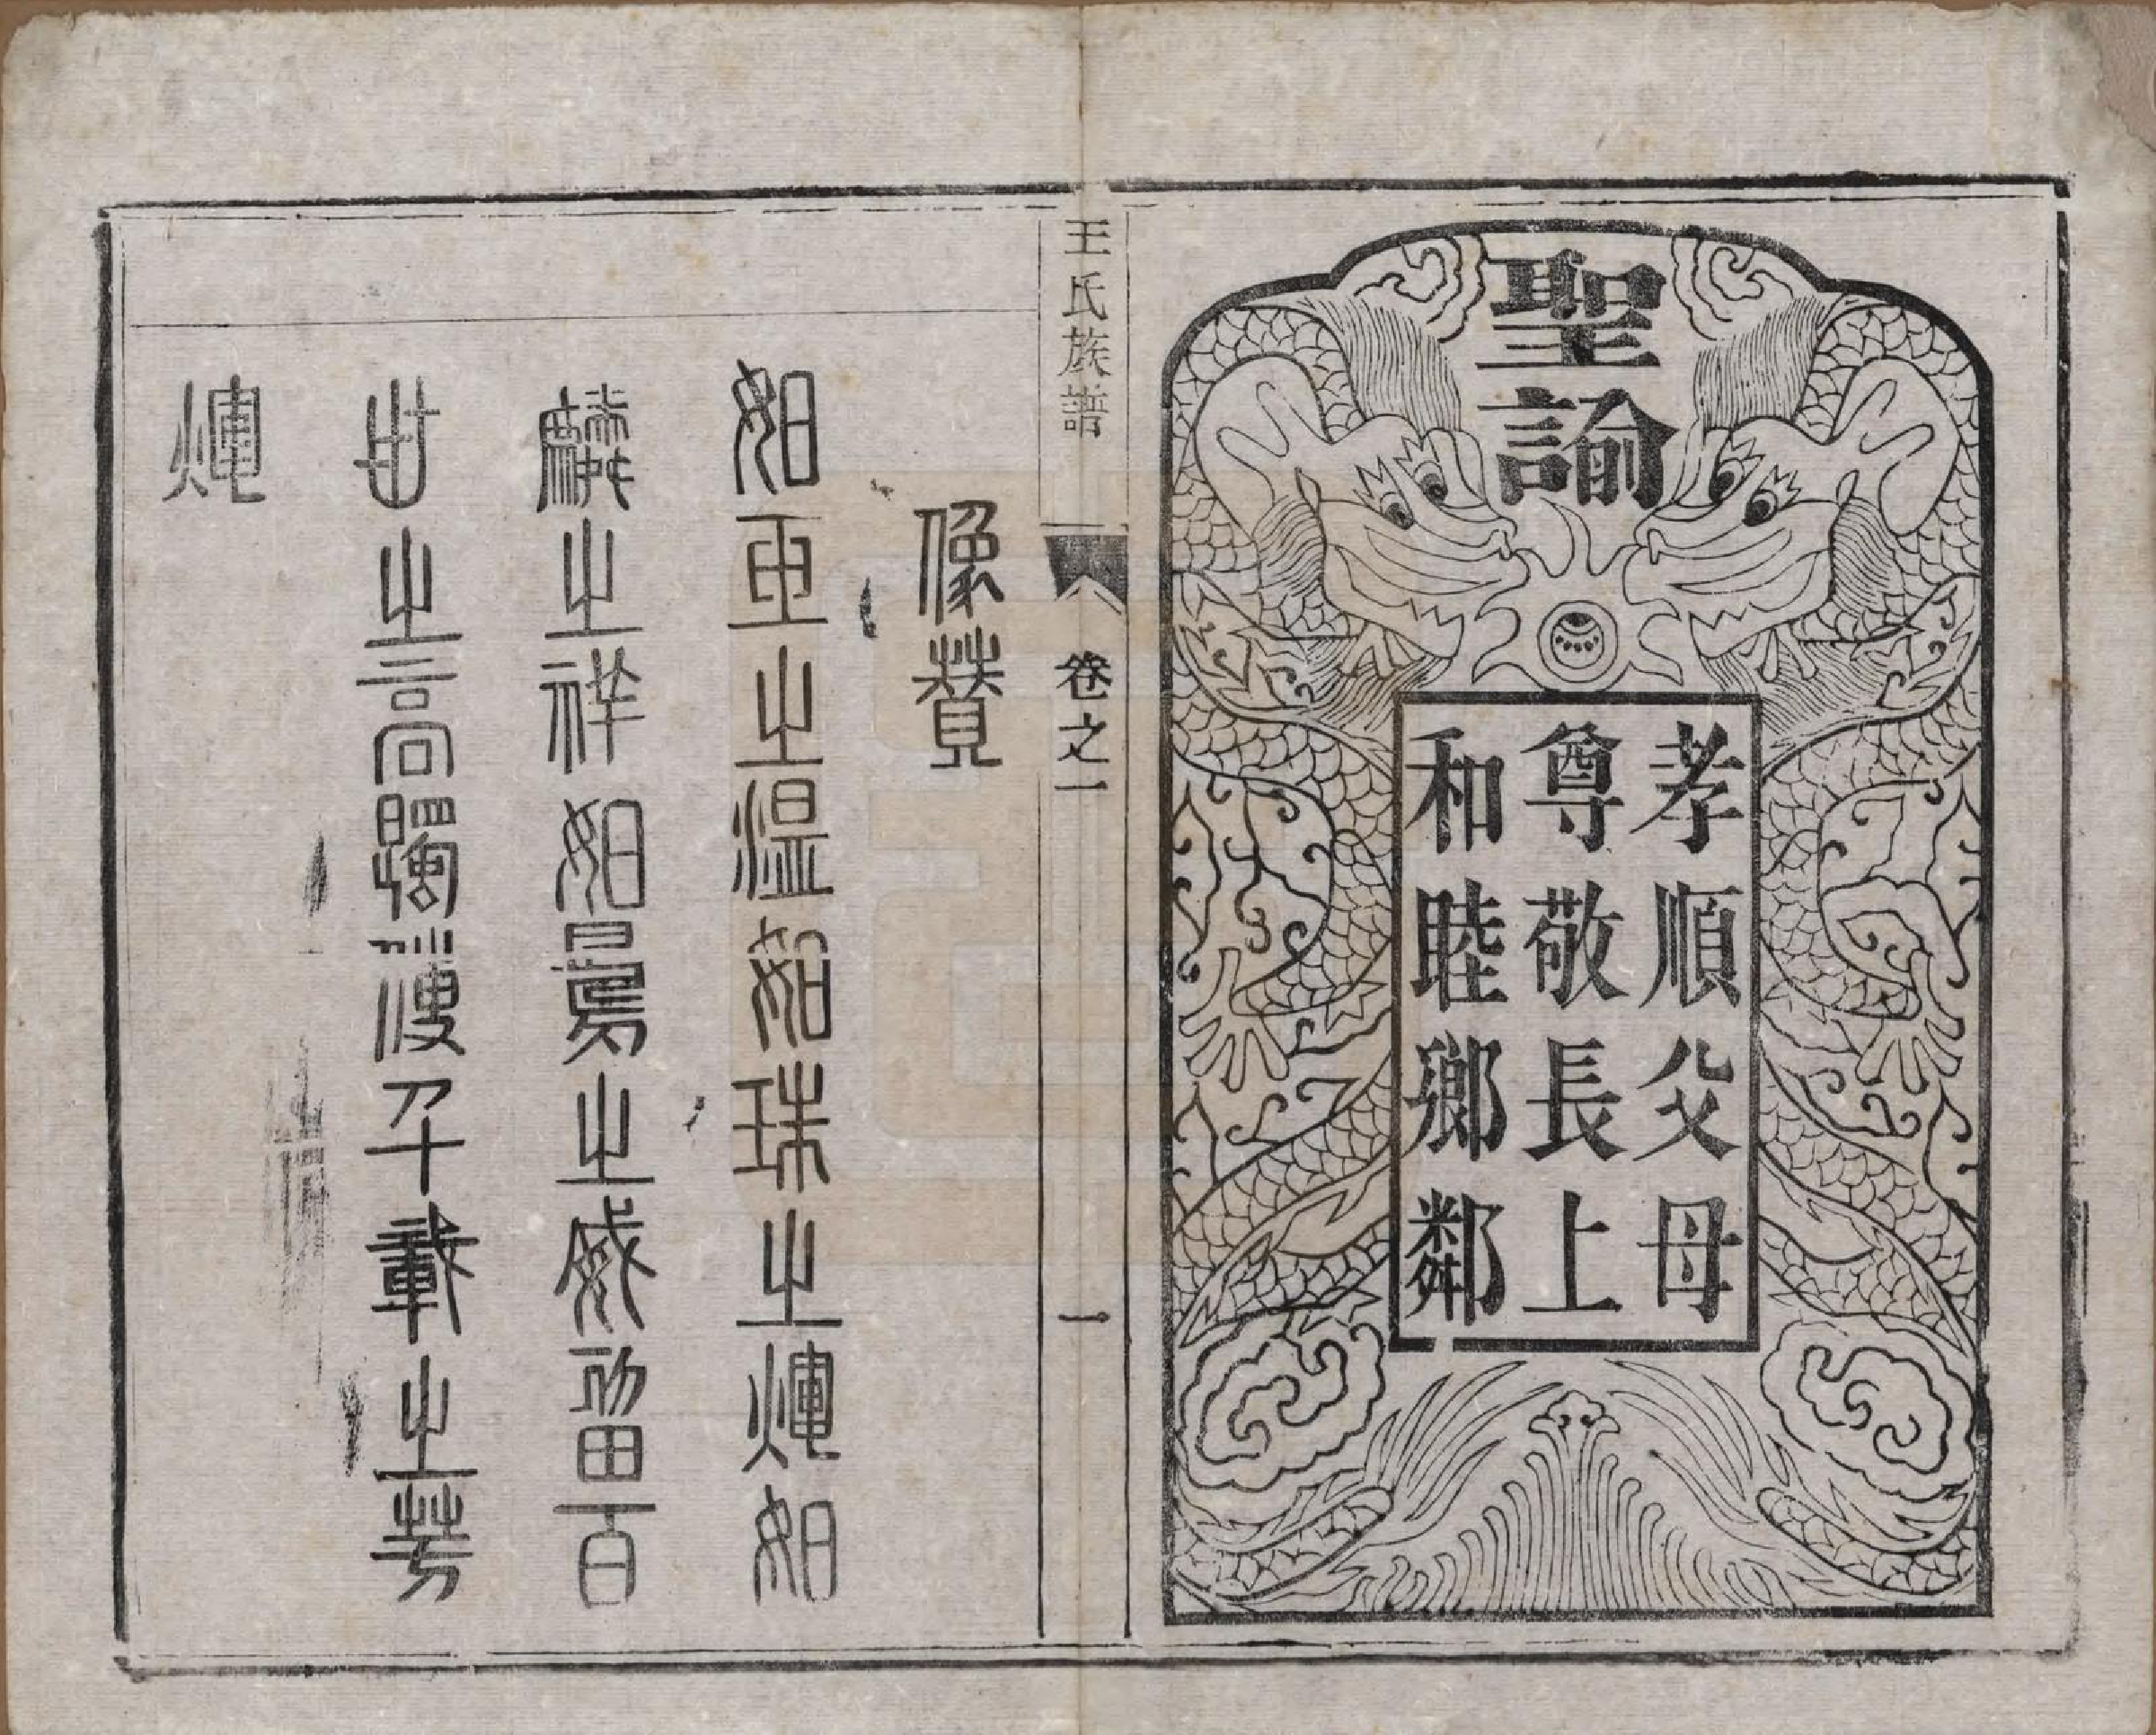 聖諭
孝順父母
尊敬長上
和睦鄉鄰
王氏族譜
卷之一
一
像贊
如玉之溫如珠之煇如
麟之祥如之威留百
世之高躅千載之芳
煇